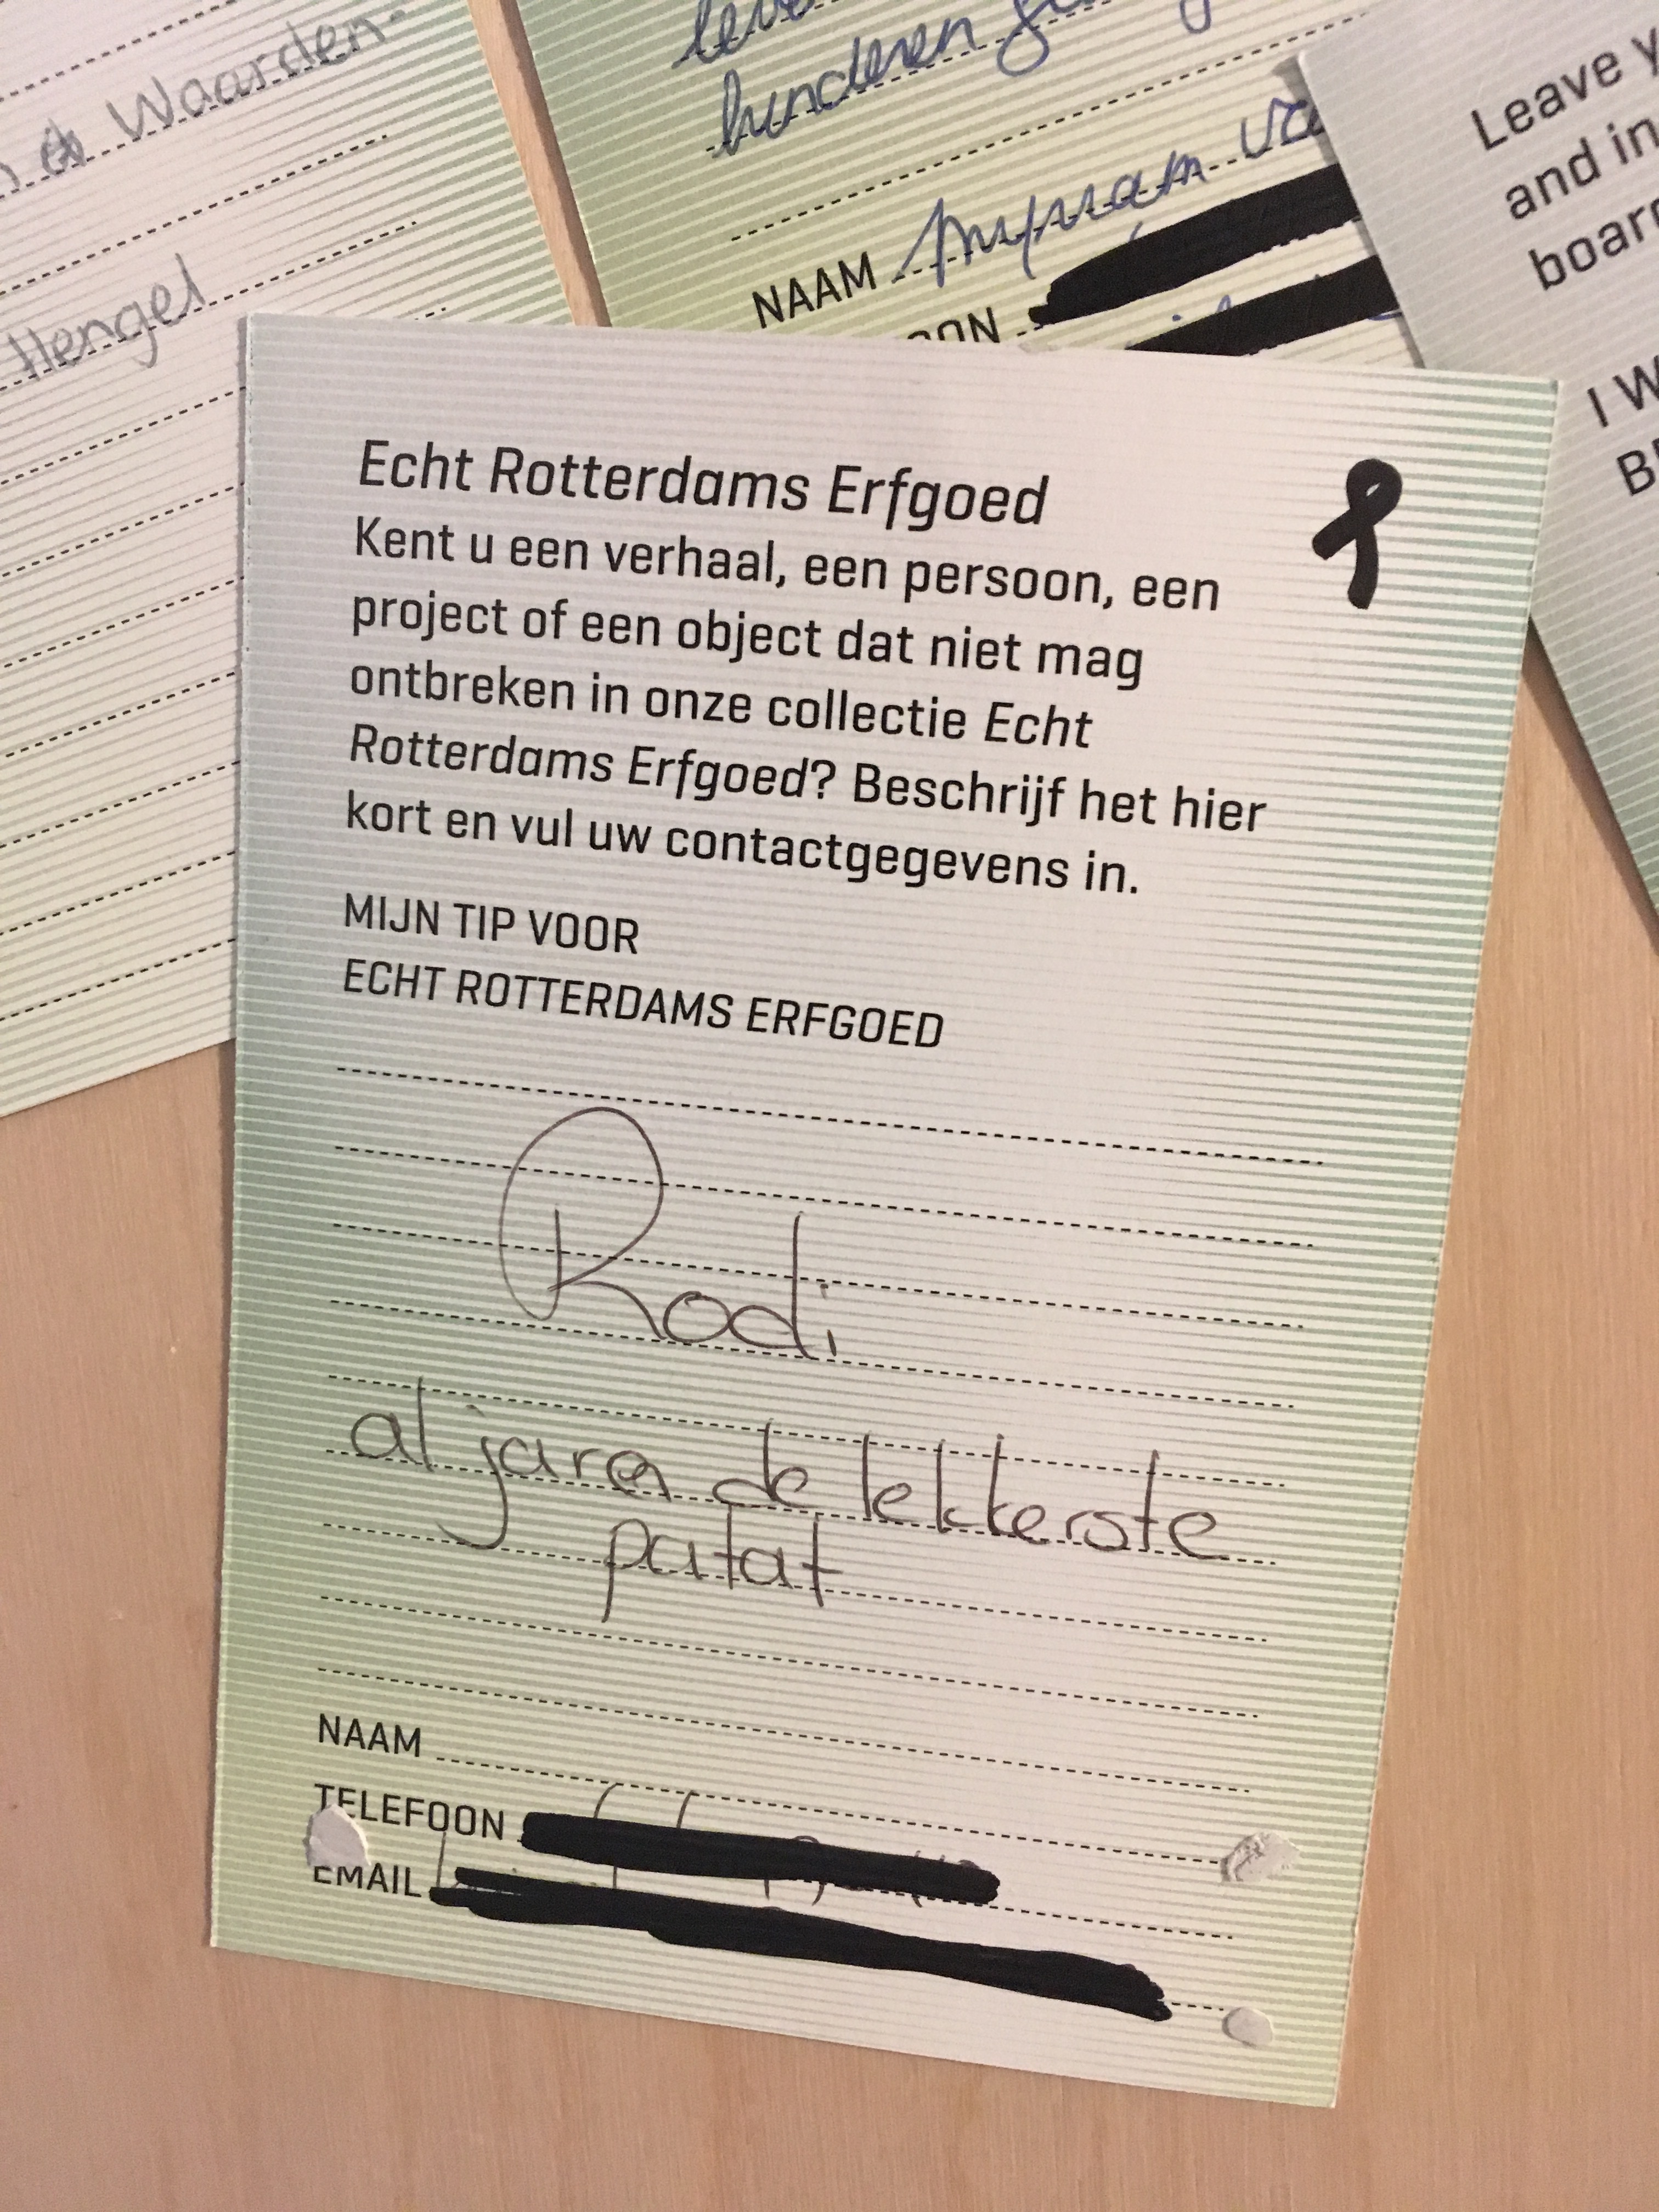 Waarden.
Hengel
hinderen
NAAM
Leave
and in
I W
Echt Rotterdams Erfgoed
Kent u een verhaal, een persoon, een
project of een object dat niet mag
ontbreken in onze collectie Echt
Rotterdams Erfgoed? Beschrijf het hier
kort en vul uw contactgegevens in.
MIJN TIP VOOR
ECHT ROTTERDAMS ERFGOED
Rodi
al jaren de lekkerste
patat
NAAM
TELEFOON
EMAIL